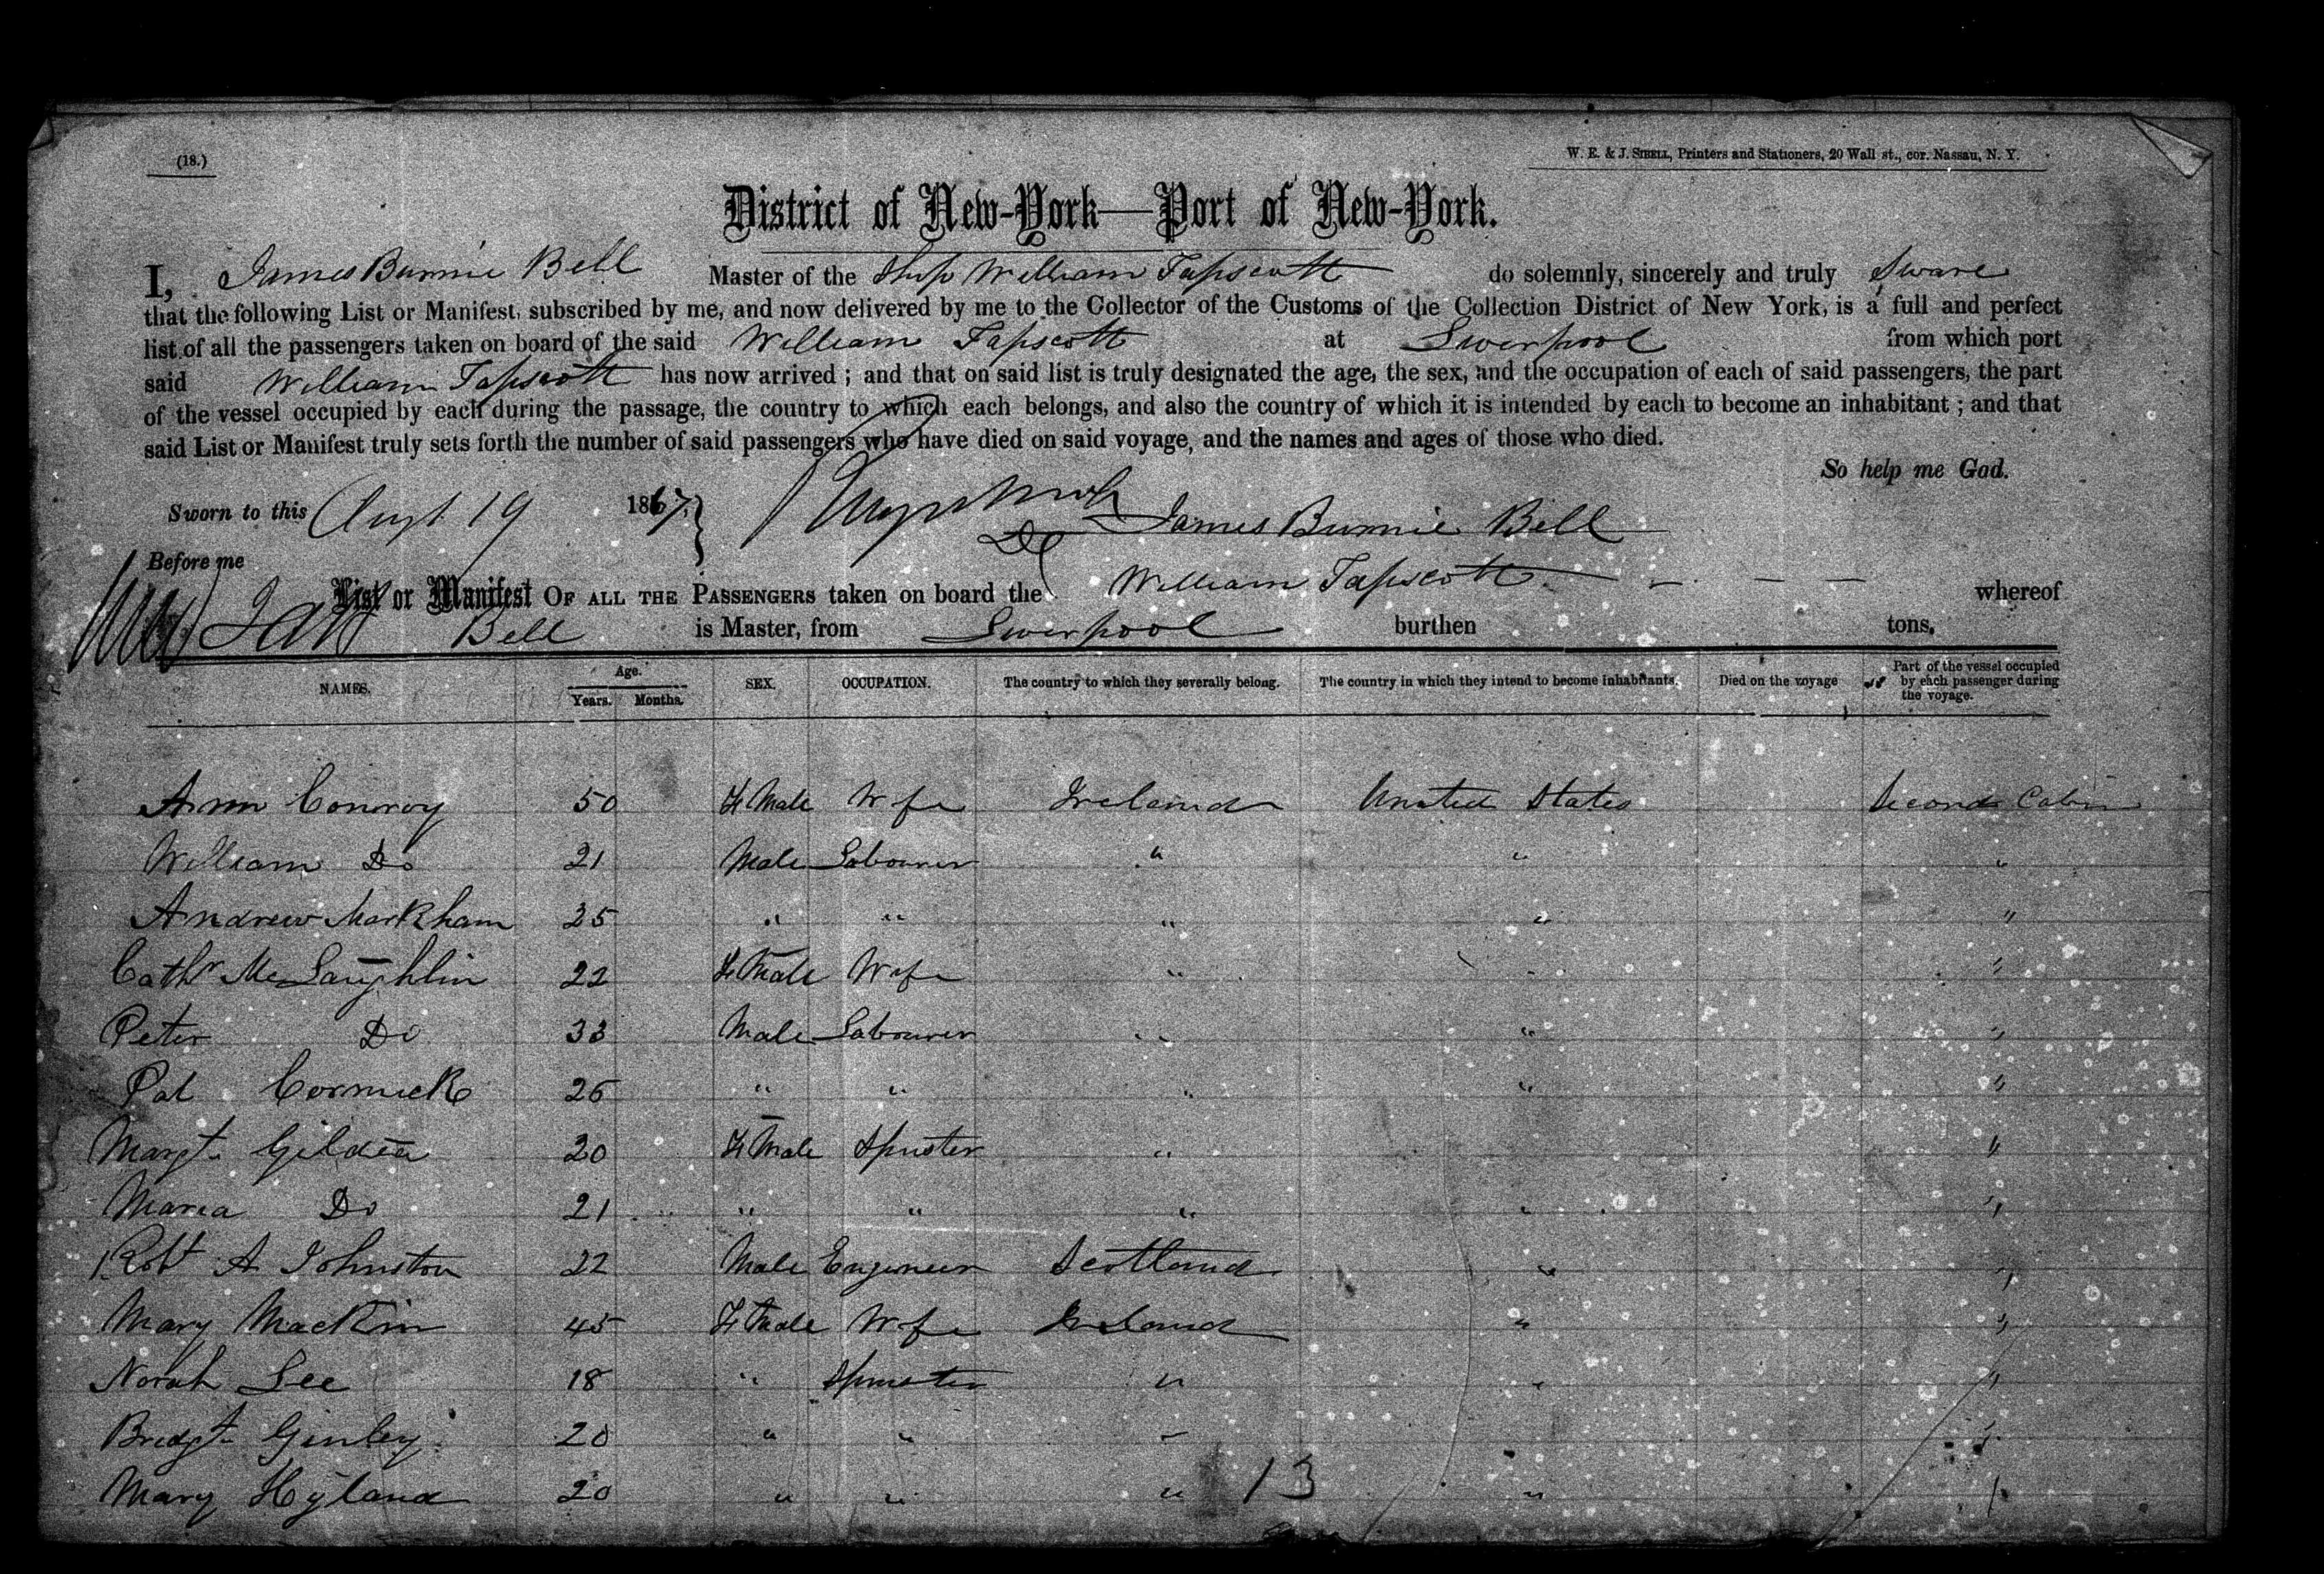 (18.)
W. E. & J. SIBELL, Printers and Stationers, 20 Wall st., cor. Nassau, N. Y.
District of New-York—Port of New-York.
I, James Burnie Bell Master of the Ship William Tapscott do solemnly, sincerely and truly Sware
that the following List or Manifest, subscribed by me, and now delivered by me to the Collector of the Customs of the Collection District of New York, is a full and perfect
list of all the passengers taken on board of the said William Tapscott at Liverpool from which port
said William Tapscott has now arrived ; and that on said list is truly designated the age, the sex, and the occupation of each of said passengers, the part
of the vessel occupied by each during the passage, the country to which each belongs, and also the country of which it is intended by each to become an inhabitant ; and that
said List or Manifest truly sets forth the number of said passengers who have died on said voyage, and the names and ages of those who died.
So help me God.
Sworn to this Augt. 19 1867. James Burnie Bell
Before me
List or Manifest OF ALL THE PASSENGERS taken on board the William Tapscott whereof
Bell is Master, from Liverpool burthen tons.
NAMES. Age. Years. Months. SEX. OCCUPATION. The country to which they severally belong. The country in which they intend to become inhabitants. Died on the voyage Part of the vessel occupied by each passenger during the voyage.
Ann Conroy 50 FeMale Wife Ireland United States Second Cabin
William Do 21 Male Labourer " " "
Andrew Markham 25 " " " " "
Cathr McLaughlin 22 FeMale Wife " " "
Peter Do 33 Male Labourer " " "
Pat Cormick 26 " " " " "
Margt Gildea 20 FeMale Spinster " " "
Maria Do 21 " " " " "
Robt A Johnston 22 Male Engineer Scotland " "
Mary Mackin 45 FeMale Wife Ireland " "
Norah Lee 18 " Spinster " " "
Bridgt Ginley 20 " " " " "
Mary Hyland 20 " " " " "
13